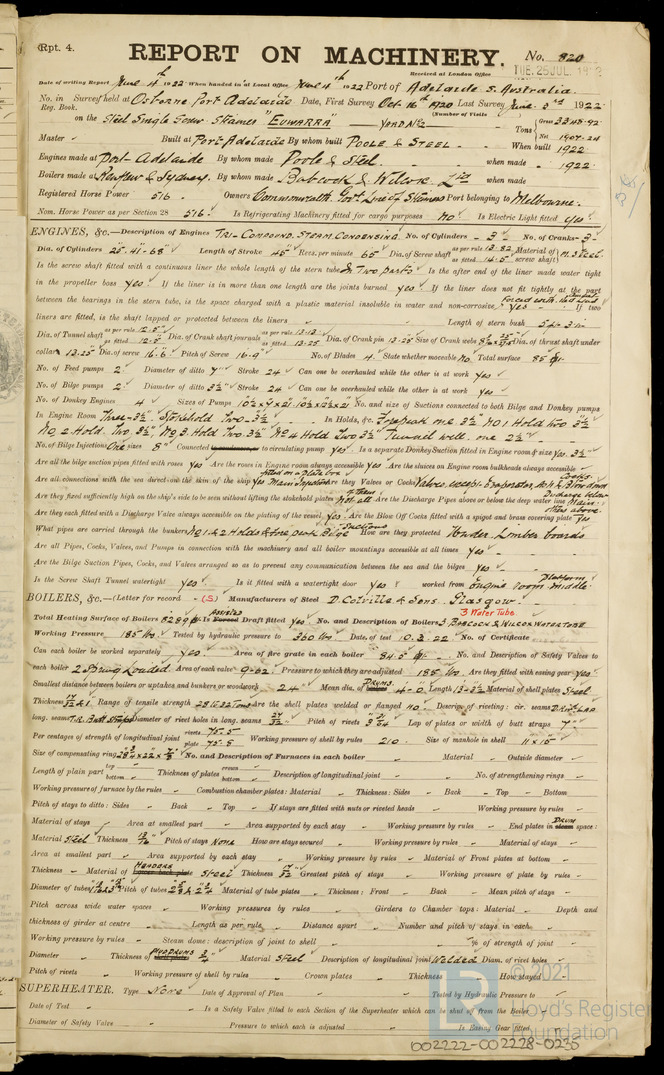 (Rpt. 4.
REPORT ON MACHINERY.
No. 820
Received at London Office
TUE. 25 JUL.
Date of writing Report June 4th 1922 When handed in at Local Office June 4th 1922 Port of Adelaide S. Australia.
No. in Survey held at Osborne Port Adelaide Date, First Survey Oct 16th 1920 Last Survey June 3rd 1922
Reg. Book.
(Number of Visits
on the Steel Single Screw Steamer "EUWARRA" Yard No 2
Tons { Gross 3348.92
Net 1907.24
Master Built at Port-Adelaide By whom built POOLE & STEEL When built 1922
Engines made at Port-Adelaide By whom made Poole & Steel. when made 1922.
Boilers made at Renfrew & Sydney. By whom made Babcock & Wilcox Ltd when made
Registered Horse Power 516 Owners Commonwealth Govt Line of Steamers Port belonging to Melbourne.
Nom. Horse Power as per Section 28 516. Is Refrigerating Machinery fitted for cargo purposes No Is Electric Light fitted Yes
ENGINES, &c.—Description of Engines TRI-COMPOUND. STEAM. CONDENSING No. of Cylinders 3 No. of Cranks 3
Dia. of Cylinders 25"-41"-68" Length of Stroke 45" Revs. per minute 65 Dia. of Screw shaft as per rule 13.82 as fitted 14.5 Material of screw shaft M. Steel
Is the screw shaft fitted with a continuous liner the whole length of the stern tube In Two parts Is the after end of the liner made water tight
in the propeller boss yes If the liner is in more than one length are the joints burned yes If the liner does not fit tightly at the part
between the bearings in the stern tube, is the space charged with a plastic material insoluble in water and non-corrosive yes If two
liners are fitted, is the shaft lapped or protected between the liners Length of stern bush 5ft 3in
Dia. of Tunnel shaft as per rule 12.5" as fitted 12.5 Dia. of Crank shaft journals as per rule 13.13 as fitted 13.25 Dia. of Crank pin 13.25 Size of Crank webs Dia. of thrust shaft under
collars 13.25 Dia. of screw 16.6 Pitch of Screw 16.9 No. of Blades 4. State whether moveable No Total surface 85
No. of Feed pumps 2 Diameter of ditto 7" Stroke 24 Can one be overhauled while the other is at work yes
No. of Bilge pumps 2 Diameter of ditto 3½" Stroke 24 Can one be overhauled while the other is at work yes
No. of Donkey Engines 4 Sizes of Pumps No. and size of Suctions connected to both Bilge and Donkey pumps
In Engine Room Three-3½" Stokehold Two-3½ In Holds, &c. Forepeak one 3½ No 1 Hold two 3½
No 2 Hold Two 3½", No 3 Hold Two 3½" No 4 Hold Two 3½" Tunnel well. one 2½"
No. of Bilge Injections One sizes 8" Connected to circulating pump yes Is a separate Donkey Suction fitted in Engine room & size yes. 3½
Are all the bilge suction pipes fitted with roses yes Are the roses in Engine room always accessible yes Are the sluices on Engine room bulkheads always accessible
Are all connections with the sea direct on the skin of the ship yes Main Injection fitted on a plate box Are they Valves or Cocks Valves. except Evaporator
Are they fixed sufficiently high on the ship's side to be seen without lifting the stokehold plates Not all Are the Discharge Pipes above or below the deep water line others above
Are they each fitted with a Discharge Valve always accessible on the plating of the vessel yes Are the Blow Off Cocks fitted with a spigot and brass covering plate yes
What pipes are carried through the bunkers No 1 & 2 Holds & fore peak Bilge Suctions How are they protected Under Limber boards
Are all Pipes, Cocks, Valves, and Pumps in connection with the machinery and all boiler mountings accessible at all times yes
Are the Bilge Suction Pipes, Cocks, and Valves arranged so as to prevent any communication between the sea and the bilges yes
Is the Screw Shaft Tunnel watertight yes Is it fitted with a watertight door yes worked from Engine room middle Platform
BOILERS, &c.—(Letter for record (S) Manufacturers of Steel D. Colville & Sons. Glasgow.
3 Water Tube
Total Heating Surface of Boilers 8289 Is Forced Assisted Draft fitted yes No. and Description of Boilers 3 BABCOCK & WILCOX WATERTUBE
Working Pressure 185 lbs. Tested by hydraulic pressure to 360 lbs Date of test 10.3.22 No. of Certificate
Can each boiler be worked separately yes Area of fire grate in each boiler 84.5 No. and Description of Safety Valves to
each boiler 2 Spring Loaded Area of each valve 9.62 Pressure to which they are adjusted 185 lbs Are they fitted with easing gear yes
Smallest distance between boilers or uptakes and bunkers or woodwork 24" Mean dia. of DRUMS 4-0 Length Material of shell plates Steel
Thickness Range of tensile strength 28 to 32 Tons Are the shell plates welded or flanged No Descrip. of riveting: cir. seams
long. seams T.R. Butt Straps Diameter of rivet holes in long. seams Pitch of rivets Lap of plates or width of butt straps 7"
Per centages of strength of longitudinal joint rivets 75.5 plate 75.8 Working pressure of shell by rules 210 Size of manhole in shell 11 x 15"
Size of compensating ring No. and Description of Furnaces in each boiler Material Outside diameter
Length of plain part top bottom Thickness of plates crown bottom Description of longitudinal joint No. of strengthening rings
Working pressure of furnace by the rules Combustion chamber plates: Material Thickness: Sides Back Top Bottom
Pitch of stays to ditto: Sides Back Top If stays are fitted with nuts or riveted heads Working pressure by rules
Material of stays Area at smallest part Area supported by each stay Working pressure by rules End plates in DRUM steam space:
Material Steel Thickness Pitch of stays None How are stays secured Working pressure by rules Material of stays
Area at smallest part Area supported by each stay Working pressure by rules Material of Front plates at bottom
Thickness Material of HEADERS Lower back plate Steel Thickness Greatest pitch of stays Working pressure of plate by rules
Diameter of tubes Pitch of tubes Material of tube plates Thickness: Front Back Mean pitch of stays
Pitch across wide water spaces Working pressures by rules Girders to Chamber tops: Material Depth and
thickness of girder at centre Length as per rule Distance apart Number and pitch of stays in each
Working pressure by rules Steam dome: description of joint to shell % of strength of joint
Diameter Thickness of MUD DRUMS ¾ Material Steel Description of longitudinal joint Welded Diam. of rivet holes
Pitch of rivets Working pressure of shell by rules Crown plates Thickness How stayed
SUPERHEATER. Type None Date of Approval of Plan Tested by Hydraulic Pressure to
Date of Test Is a Safety Valve fitted to each Section of the Superheater which can be shut off from the Boiler
Diameter of Safety Valve Pressure to which each is adjusted Is Easing Gear fitted
© 2021
LR
Lloyd's Register
Foundation
002222-002228-0235